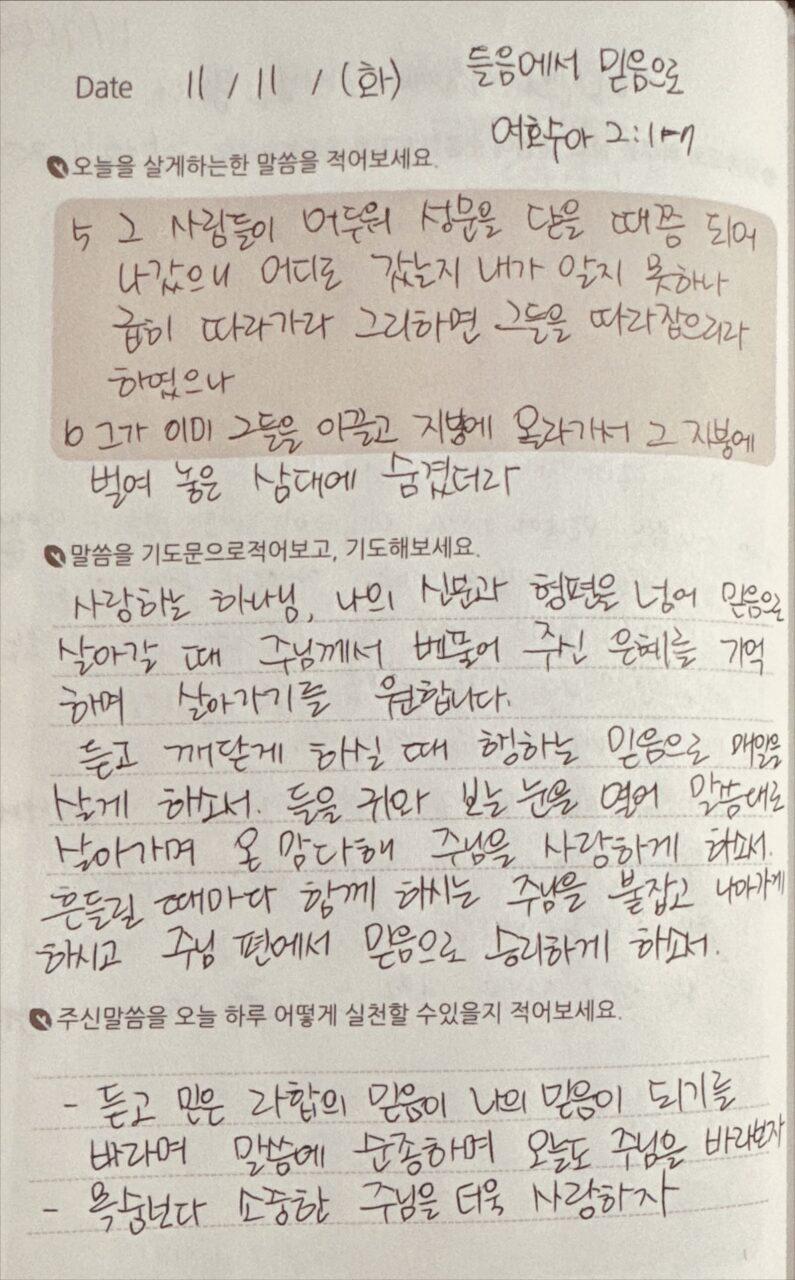 Date 11 / 11 / (화) 들음에서 믿음으로
여호수아 2:1-7
오늘을 살게하는한 말씀을 적어보세요.
5 그 사람들이 어두워 성문을 닫을 때쯤 되어
나갔으니 어디로 갔는지 내가 알지 못하나
급히 따라가라 그리하면 그들을 따라잡으리라
하였으나
6 그가 이미 그들을 이끌고 지붕에 올라가서 그 지붕에
벌여 놓은 삼대에 숨겼더라
말씀을 기도문으로적어보고, 기도해보세요.
사랑하는 하나님, 나의 신분과 형편을 넘어 믿음으로
살아갈 때 주님께서 베풀어 주신 은혜를 기억
하며 살아가기를 원합니다.
듣고 깨닫게 하실 때 행하는 믿음으로 매일을
살게 하소서. 들을 귀와 보는 눈을 열어 말씀대로
살아가며 온 맘다해 주님을 사랑하게 하소서.
흔들릴 때마다 함께 하시는 주님을 붙잡고 나아가게
하시고 주님 편에서 믿음으로 승리하게 하소서.
주신말씀을 오늘 하루 어떻게 실천할 수있을지 적어보세요.
- 듣고 믿은 라합의 믿음이 나의 믿음이 되기를
바라며 말씀에 순종하며 오늘도 주님을 바라보자
- 목숨보다 소중한 주님을 더욱 사랑하자